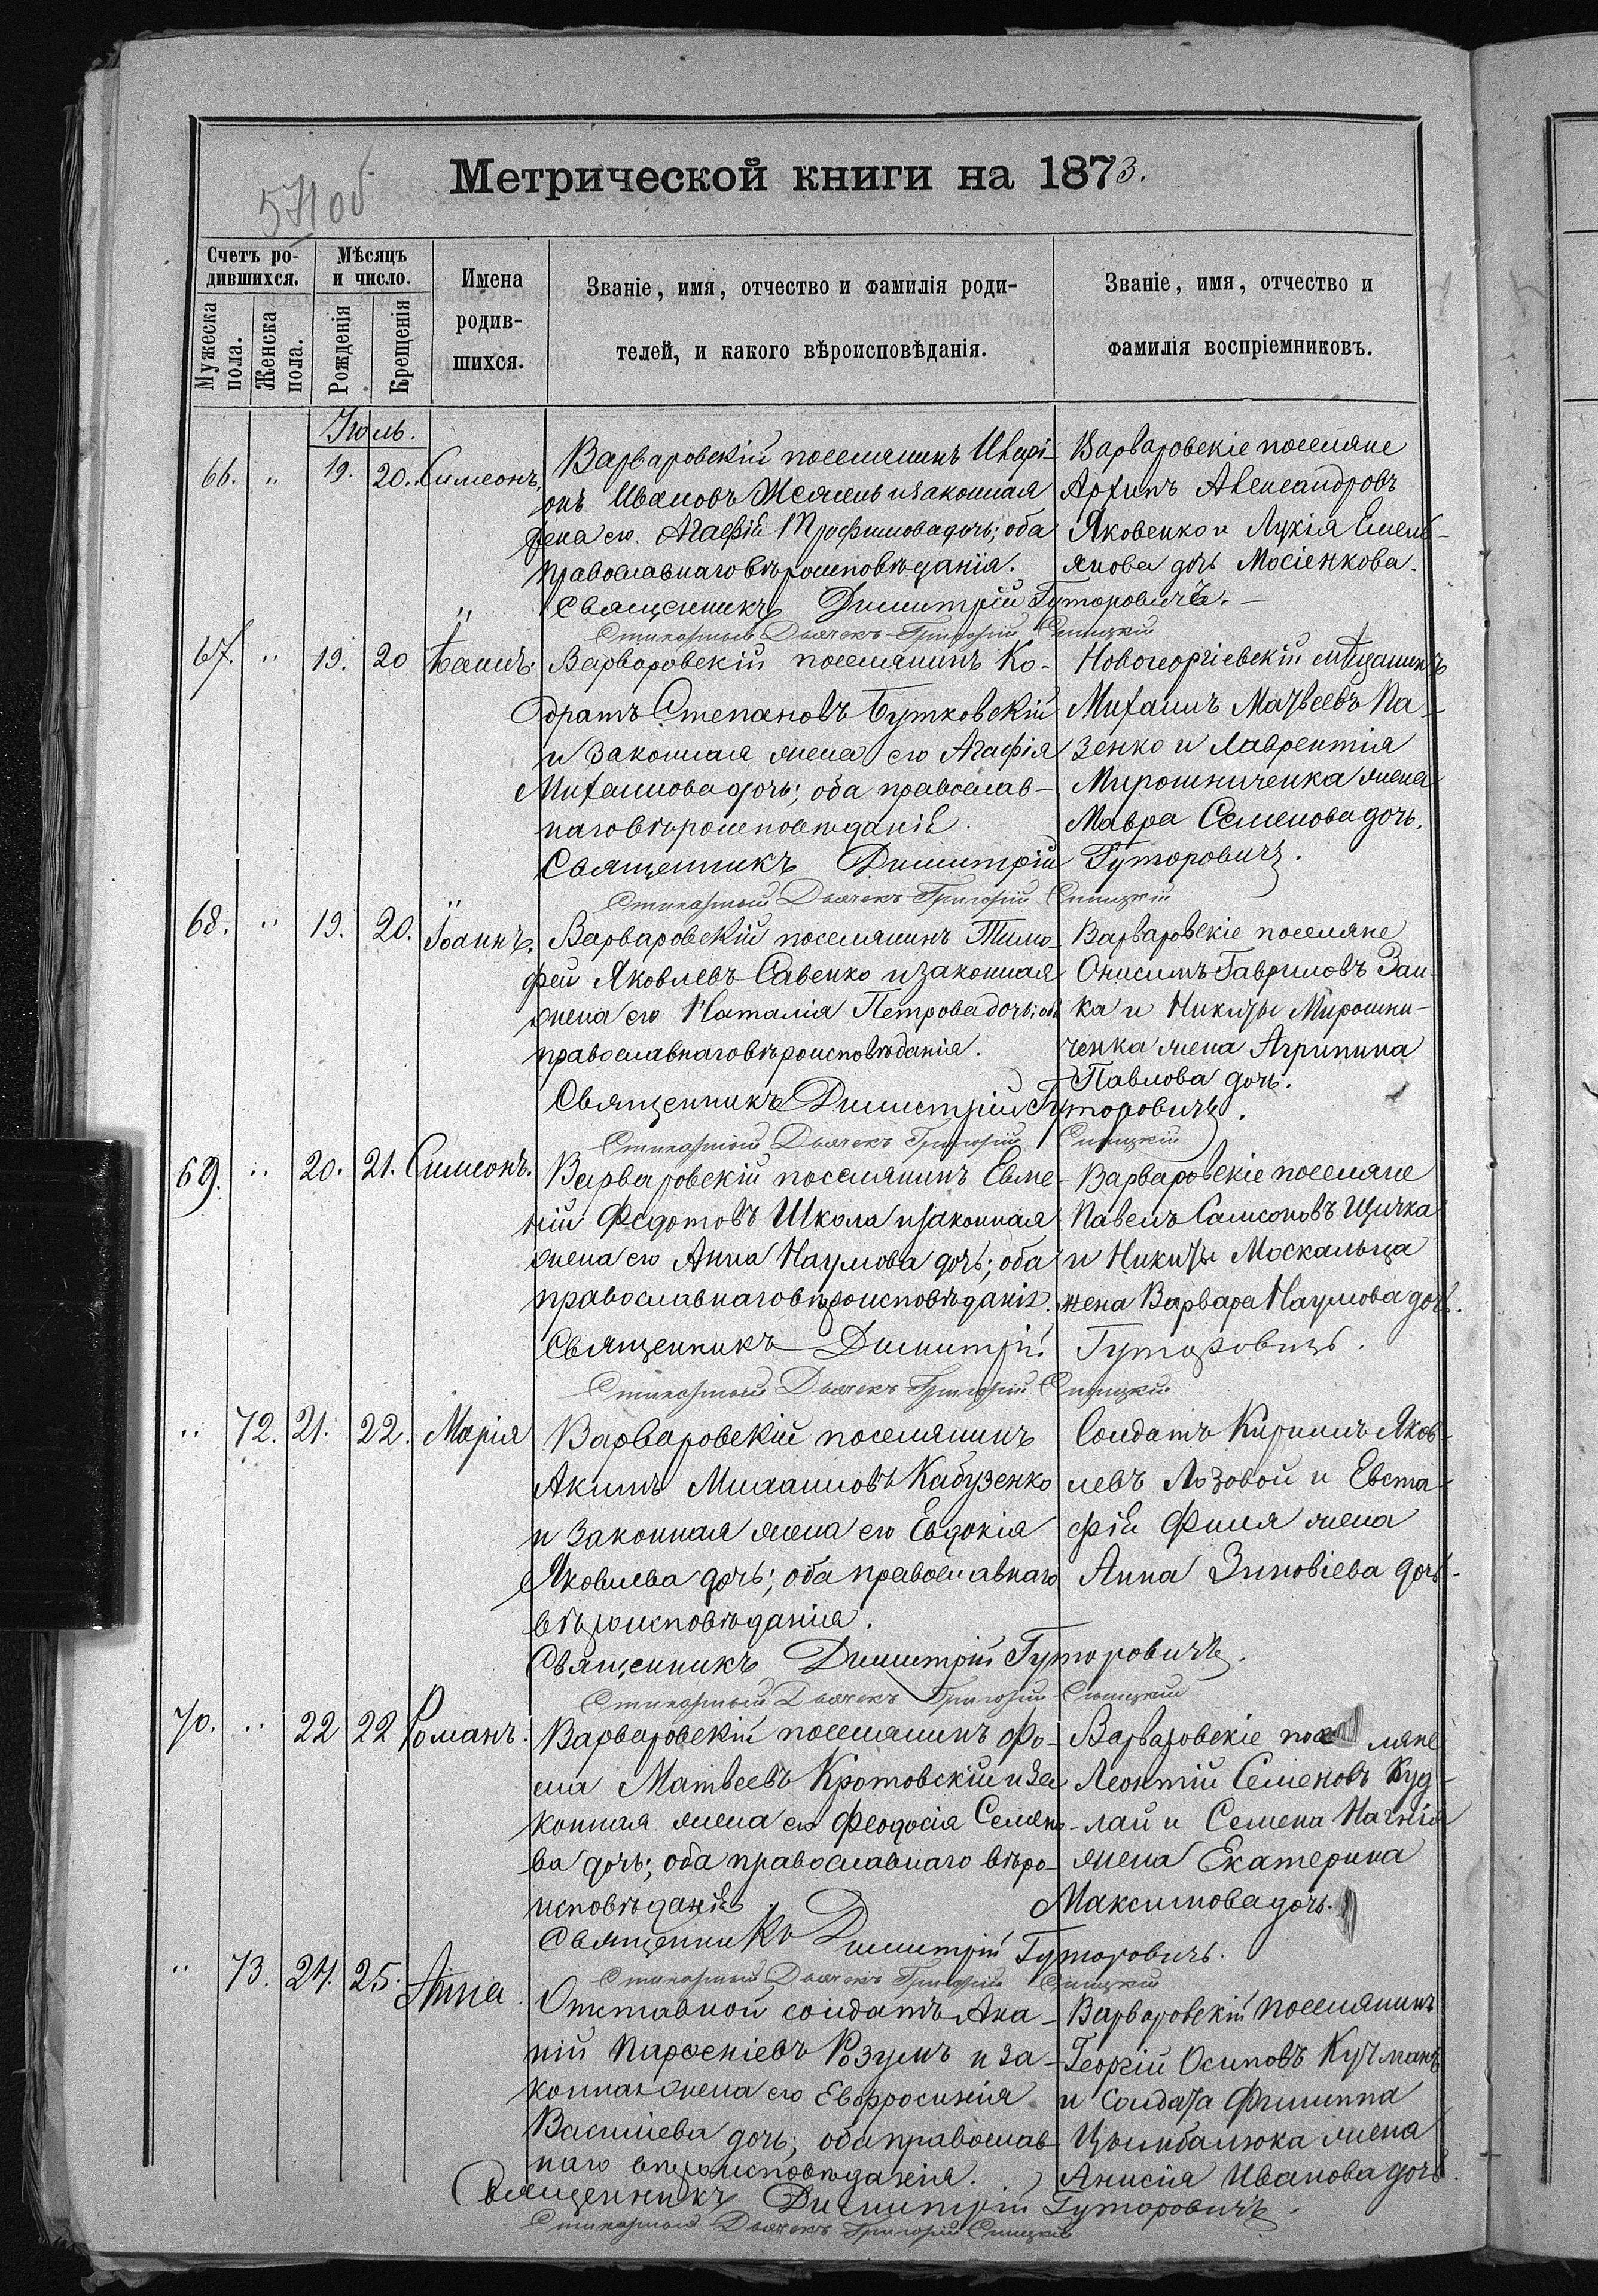 57 об
Метрической книги на 1873.
Счетъ ро-
дившихся.
Мѣсяцъ
и число.
Имена
родив-
шихся.
Званіе, имя, отчество и фамилія роди-
телей, и какого вѣроисповѣданія.
Званіе, имя, отчество и
фамилія воспріемниковъ.
Мужеска
пола.
Женска
пола.
Рожденія
Крещенія
Іюль.
66. " 19. 20. Симеонъ.
Варваровскій поселянинъ
Ивановъ и законная
жена его Агафія Трофимова дочь; оба
православнаго вѣроисповѣданія.
Варваровскіе поселяне
Архипъ Александровъ
Яковенко и Лукія Емель-
янова дочь Мосіенкова.
Священникъ Димитрій Гуторовичъ.
Стихарный Дьячекъ Григорій Спицкій
67. " 19. 20
Варваровскій поселянинъ Ко-
дратъ Степановъ Бутковскій
и законная жена его Агафія
Михаилова дочь; оба православ-
наго вѣроисповѣданія.
Новогеоргіевскій мѣщанинъ
Михаилъ Матвеевъ Па-
зенко и Лаврентія
Мирошниченка жена
Мавра Семенова дочь.
Священникъ Димитрій Гуторовичъ.
Стихарный Дьячекъ Григорій Спицкій
68. " 19. 20. Іоаннъ.
Варваровскій поселянинъ Тимо-
фей Яковлевъ Савенко и законная
жена его Наталія Петрова дочь; оба
православнаго вѣроисповѣданія.
Варваровскіе поселяне
Онисимъ Гавриловъ Заи-
ка и Никиты Мирошни-
ченка жена Агрипина
Павлова дочь.
Священникъ Димитрій Гуторовичъ.
Стихарный Дьячекъ Григорій Спицкій
69. " 20. 21. Симеонъ.
Варваровскій поселянинъ Евме-
ній Федотовъ Школа и законная
жена его Анна Наумова дочь; оба
православнаго вѣроисповѣданія.
Варваровскіе поселяне
Павелъ Самсоновъ
и Никиты Москальца
жена Варвара Наумова дочь.
Священникъ Димитрій Гуторовичъ.
Стихарный Дьячекъ Григорій Спицкій
" 72. 21. 22. Марія
Варваровскій поселянинъ
Акимъ Кабузенко
и законная жена его Евдокія
Яковлева дочь; оба православнаго
вѣроисповѣданія.
Солдатъ Кирилъ Яков-
левъ Лозовой и Евста-
фія Филя жена
Анна Зиновіева дочь.
Священникъ Димитрій Гуторовичъ.
Стихарный Дьячекъ Григорій Спицкій
70. " 22 22 Романъ.
Варваровскій поселянинъ Фо-
ма Матвеевъ Кротовскій и за-
конная жена его Феодосія Семено-
ва дочь; оба православнаго вѣро-
исповѣданія
Варваровскіе поселяне
Леонтій Семеновъ Куд-
лай и Семена
жена Екатерина
Максимова дочь.
Священникъ Димитрій Гуторовичъ.
Стихарный Дьячекъ Григорій Спицкій
" 73. 24. 25. Анна.
Отставной солдатъ Ана-
ній Парфеніевъ Розумъ и за-
конная жена его Евфросинія
Василіева дочь; оба православ-
наго вѣроисповѣданія.
Варваровскій поселянинъ
Георгій Осиповъ Кучманъ
и солдата Филиппа
Цымбалюка жена
Анисія Иванова дочь.
Священникъ Димитрій Гуторовичъ.
Стихарный Дьячекъ Григорій Спицкій